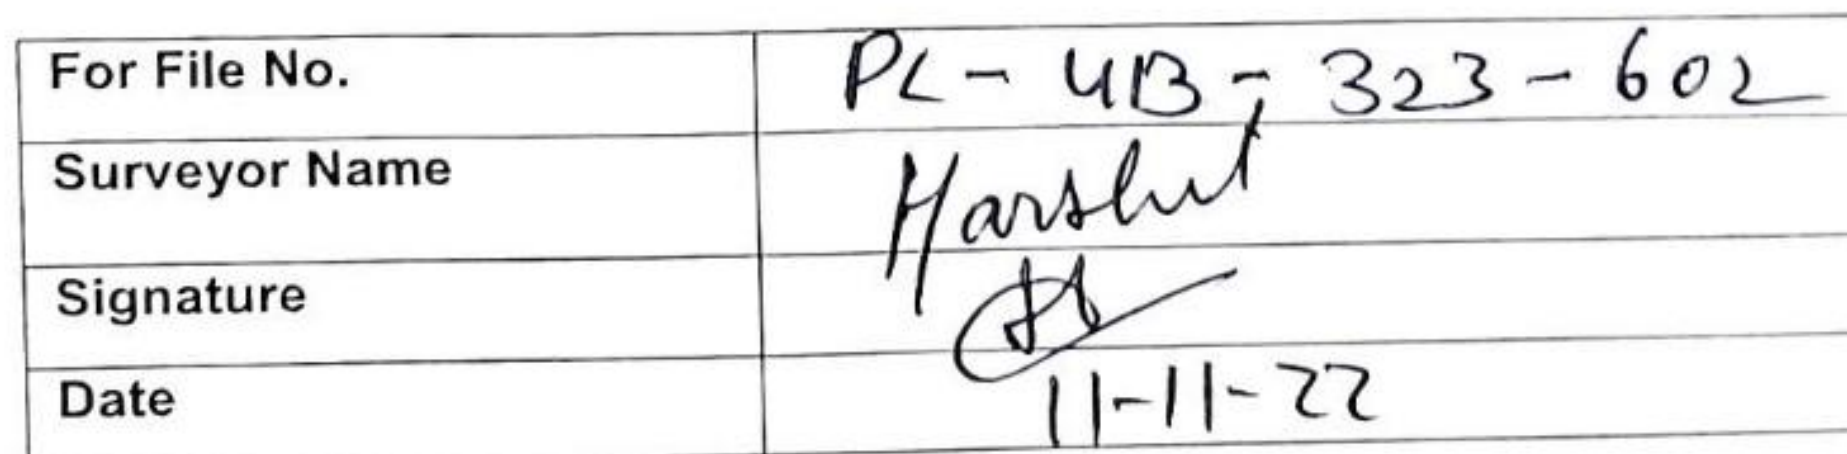 For File No. PL - 4B - 323 - 602
Surveyor Name Harshit
Signature
Date 11-11-22